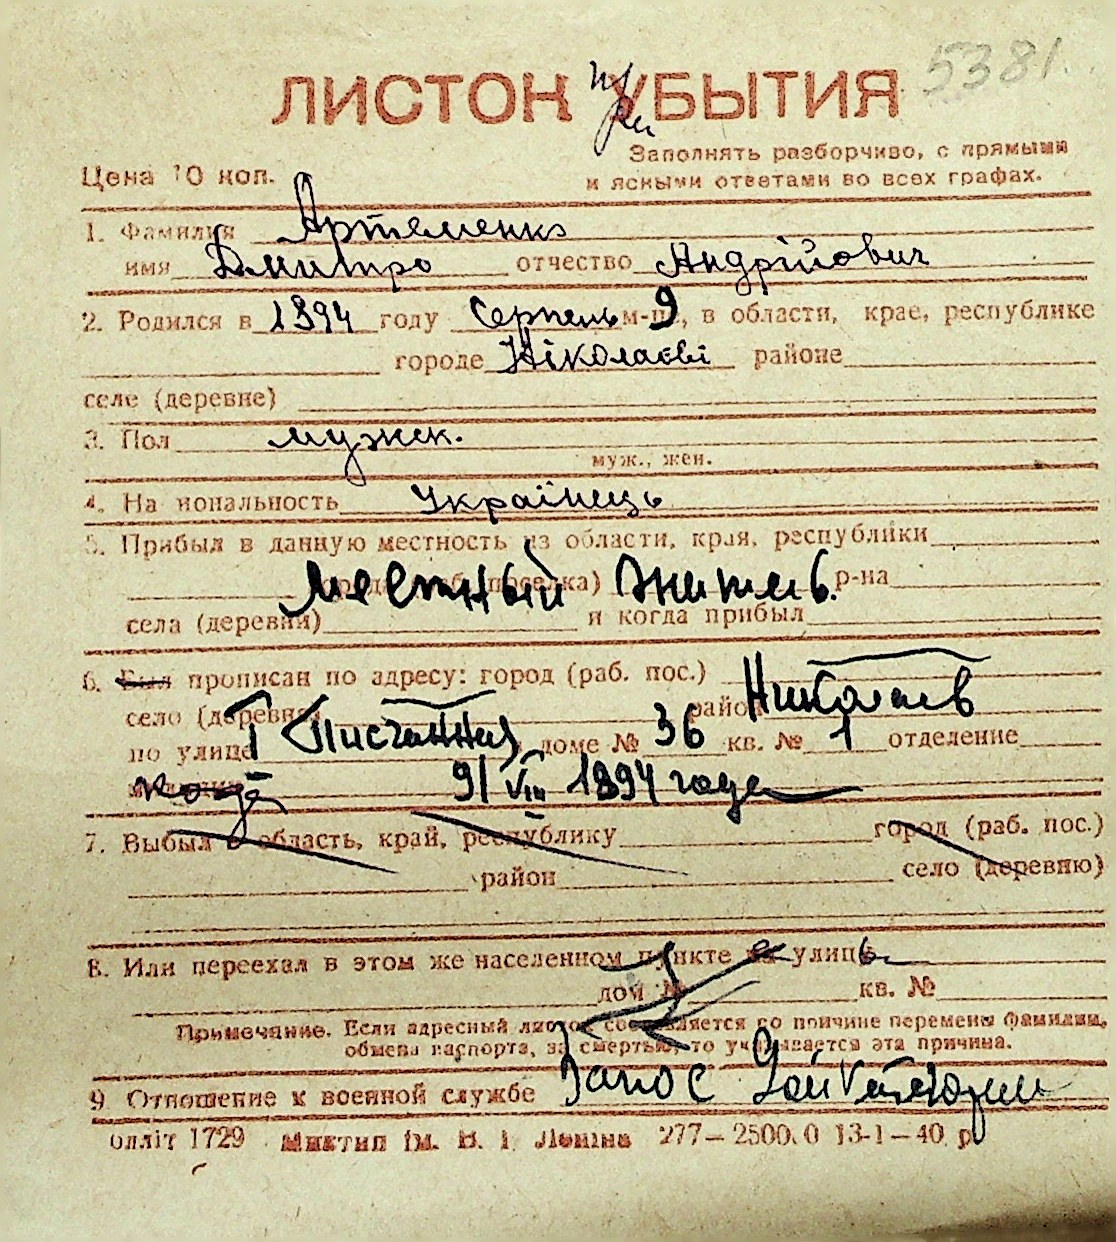 5381.
ЛИСТОК УБЫТИЯ
при
Заполнять разборчиво, с прямыми
Цена 10 коп.
и ясными ответами во всех графах.
1. Фамилия Артеменко
имя Дмитро отчество Андрійович
2. Родился в 1894 году Серпень м-це, 9 в области, крае, республике
городе Ніколаєві районе
селе (деревне)
3. Пол мужск.
муж., жен.
4. Национальность Українець
5. Прибыл в данную местность из области, края, республики
города (раб. поселка) р-на
местный житель.
села (деревни) и когда прибыл
6. Был прописан по адресу: город (раб. пос.) Николаев
село (деревня) район
по улице Песчанная доме № 36 кв. № 1 отделение
милиции когда 9/VIII 1894 года
7. Выбыл в область, край, республику город (раб. пос.)
район село (деревню)
8. Или переехал в этом же населенном пункте на улицу
дом № кв. №
Примечание. Если адресный листок составляется по причине перемены фамилии,
обмена паспорта, за смертью, то указывается эта причина.
9. Отношение к военной службе Запас
олліт 1729 Миктип ім. В. І. Леніна 277—2500.0 13-1—40 р.